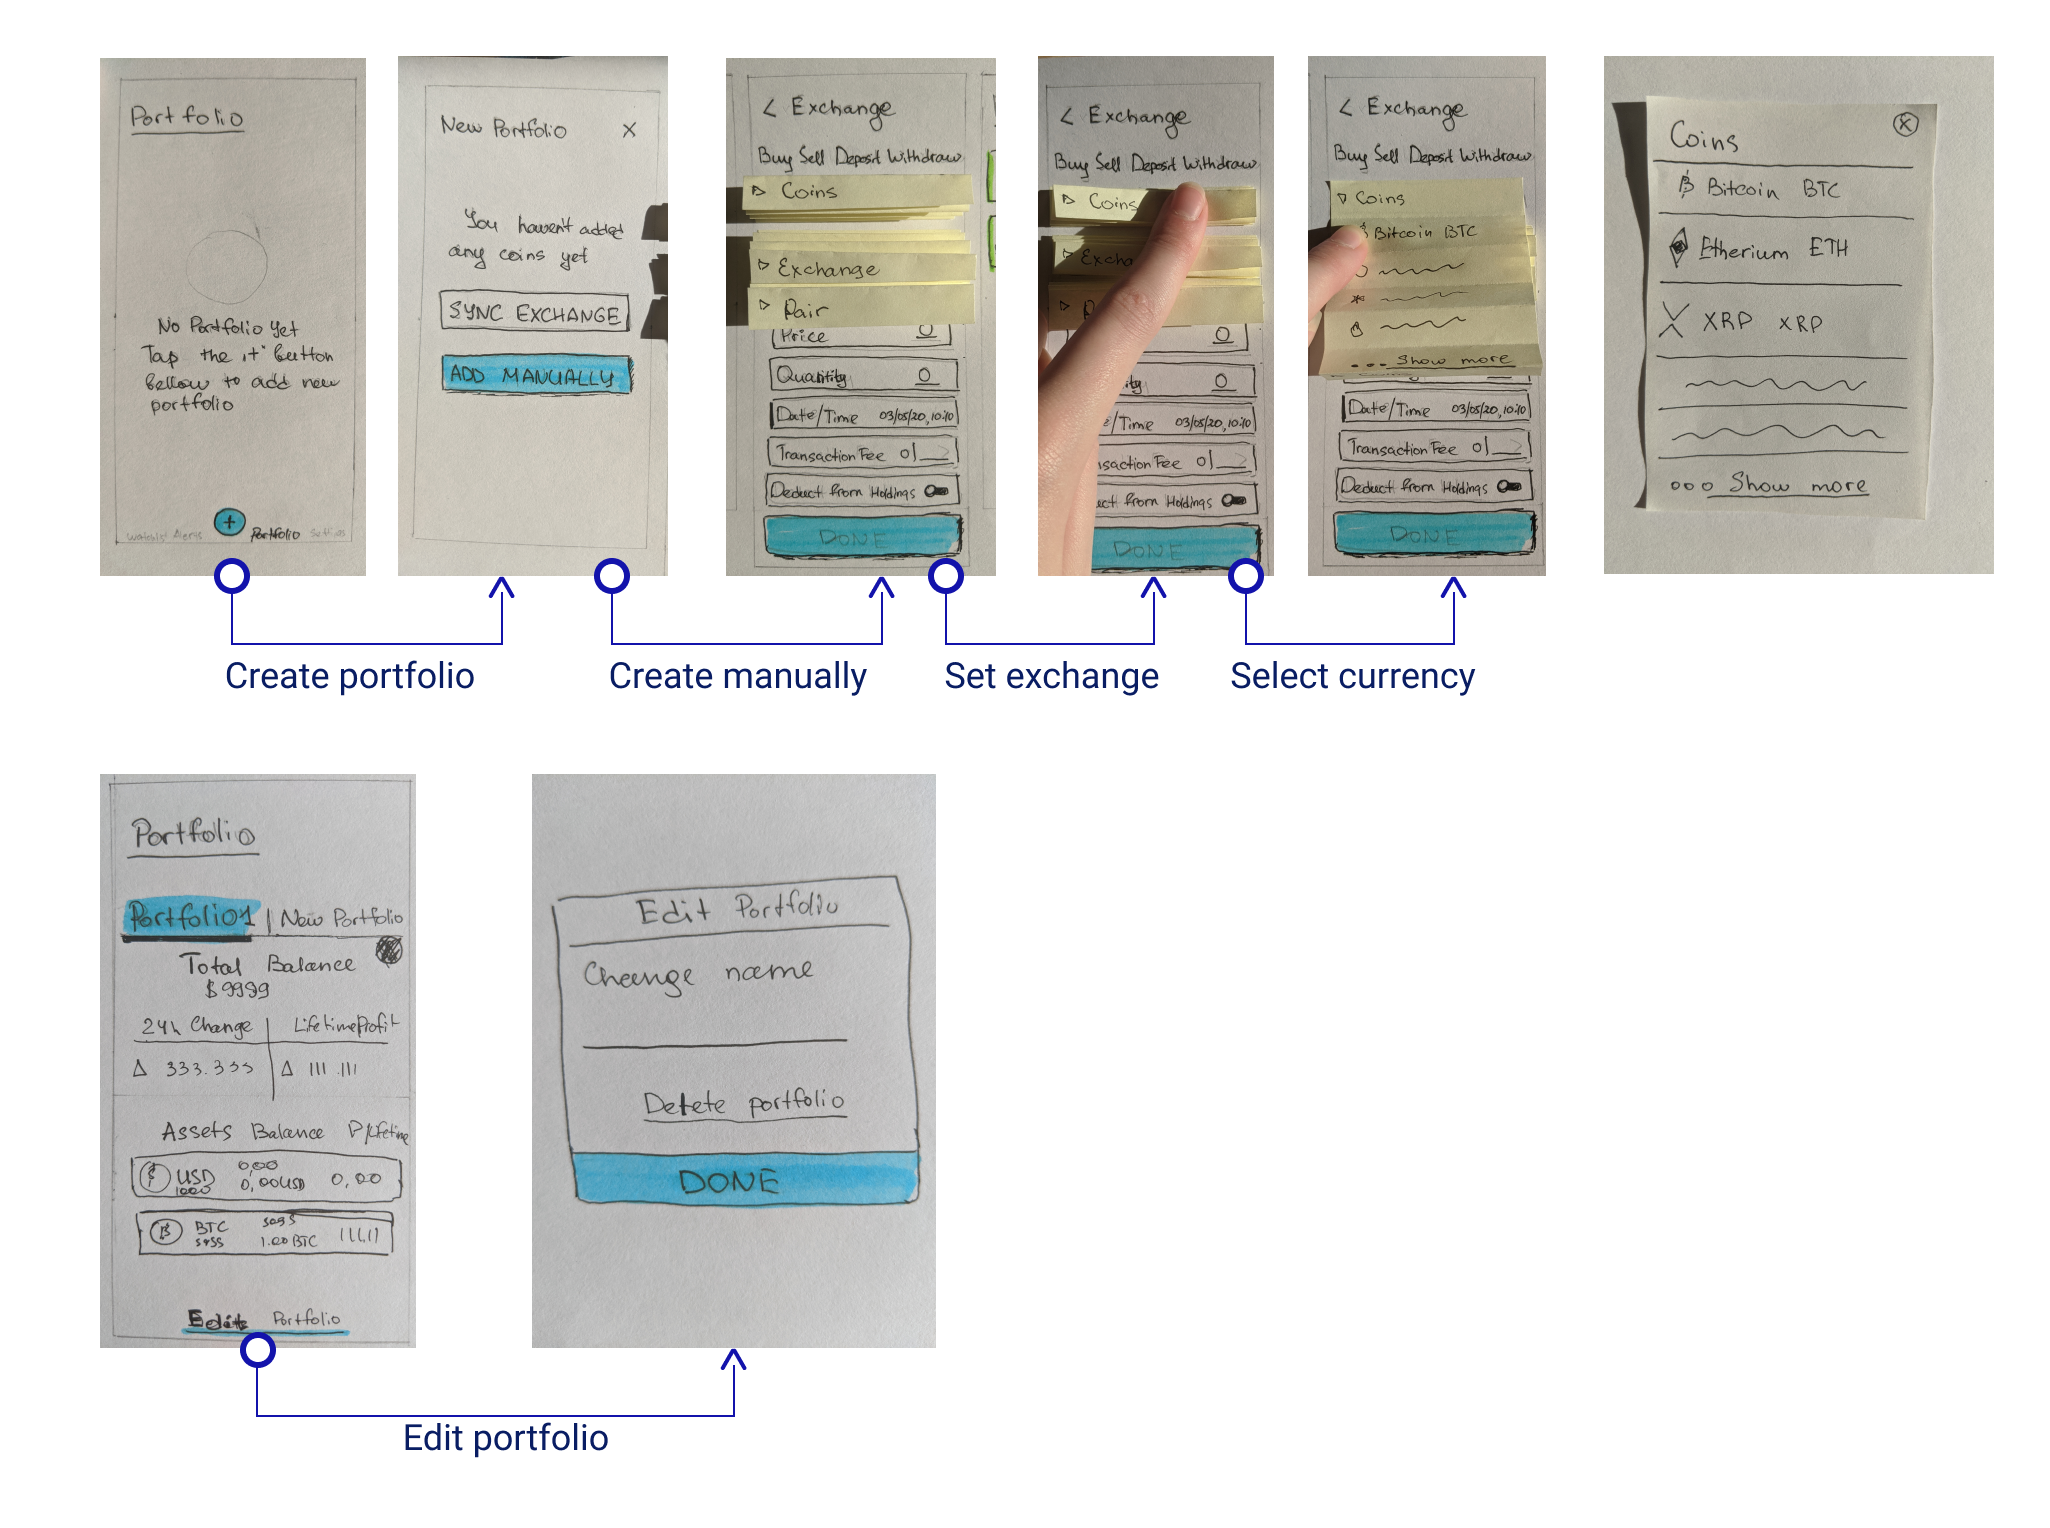 Portfolio
No Portfolio yet
Tap the "+" button
bellow to add new
portfolio
+
Watchlist Alerts Portfolio Settings
New Portfolio X
You haven't added
any coins yet
SYNC EXCHANGE
ADD MANUALLY
< Exchange
Buy Sell Deposit Withdraw
Coins
Exchange
Pair
Price 0
Quantity 0
Date/Time 03/05/20, 10:10
Transaction Fee 0
Deduct from Holdings
DONE
< Exchange
Buy Sell Deposit Withdraw
Coins
Exch
P
0
tity 0
e/Time 03/05/20, 10:10
nsaction Fee 0
uct from Holdings
DONE
< Exchange
Buy Sell Deposit Withdraw
Coins
Bitcoin BTC
... Show more
Date/Time 03/05/20, 10:10
Transaction Fee 0
Deduct from Holdings
DONE
Coins X
Bitcoin BTC
Etherium ETH
XRP XRP
ooo Show more
Create portfolio
Create manually
Set exchange
Select currency
Portfolio
Portfolio1 | New Portfolio
Total Balance
$9999
24h Change | Lifetime Profit
Δ 333.333 | Δ 111.111
Assets Balance P/Lifetime
$ USD 0,00
1000 0,00USD 0,00
BTC
1.00 BTC 111,11
Edit Portfolio
Edit Portfolio
Change name
Delete portfolio
DONE
Edit portfolio